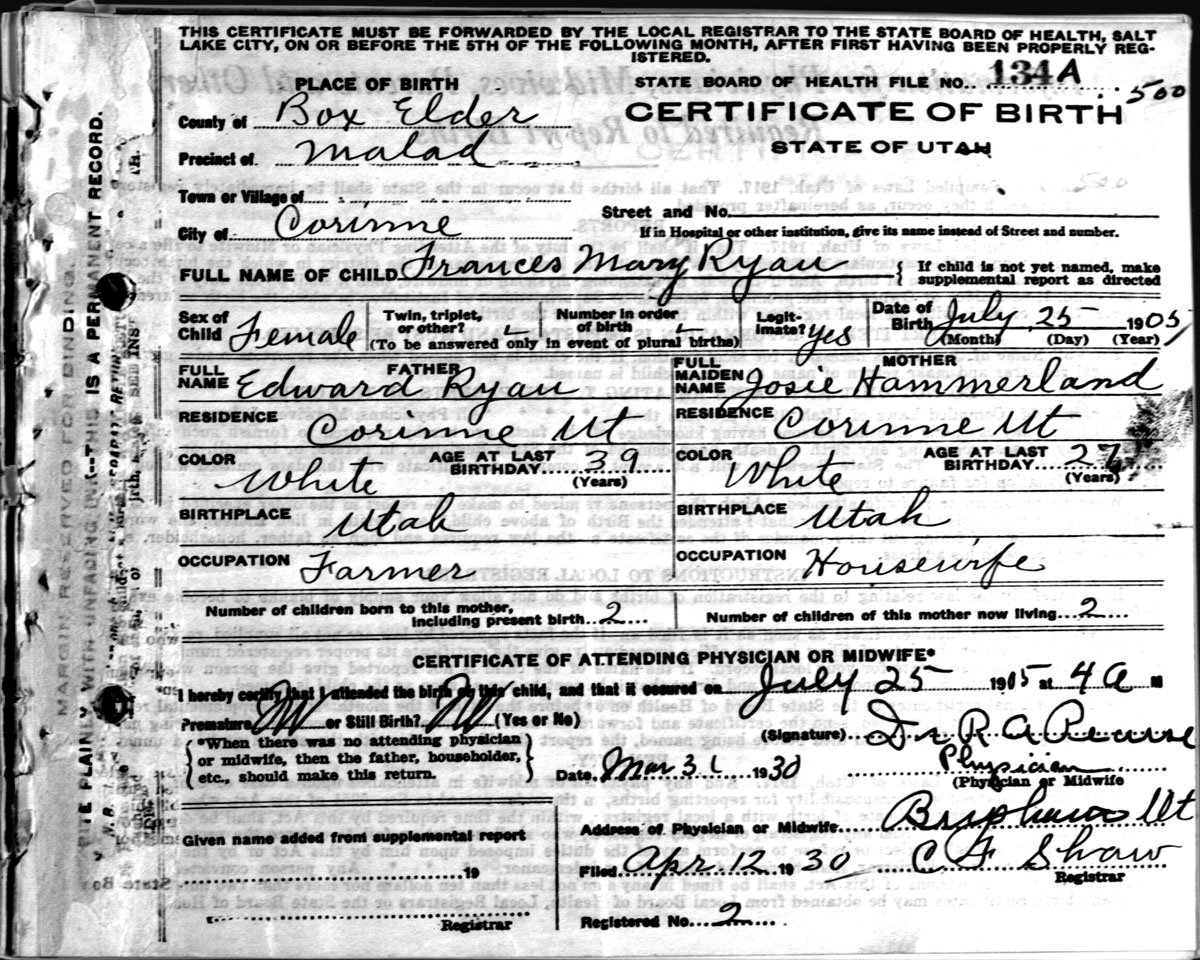 THIS CERTIFICATE MUST BE FORWARDED BY THE LOCAL REGISTRAR TO THE STATE BOARD OF HEALTH, SALT
LAKE CITY, ON OR BEFORE THE 5TH OF THE FOLLOWING MONTH, AFTER FIRST HAVING BEEN PROPERLY REG-
ISTERED.
PLACE OF BIRTH
STATE BOARD OF HEALTH FILE NO. 134A
500
County of Box Elder
CERTIFICATE OF BIRTH
Precinct of Malad
STATE OF UTAH
Town or Village of
Street and No.
City of Corinne
If in Hospital or other institution, give its name instead of Street and number.
FULL NAME OF CHILD Frances Mary Ryan
{ If child is not yet named, make
supplemental report as directed
Sex of
Child Female
Twin, triplet,
or other?
Number in order
of birth
(To be answered only in event of plural births)
Legit-
imate? yes
Date of
Birth July 25 1905
(Month) (Day) (Year)
FATHER
FULL
NAME Edward Ryan
MOTHER
FULL
MAIDEN
NAME Josie Hammerland
RESIDENCE Corinne Ut
RESIDENCE Corinne Ut
COLOR White
AGE AT LAST
BIRTHDAY 39
(Years)
COLOR White
AGE AT LAST
BIRTHDAY 27
(Years)
BIRTHPLACE Utah
BIRTHPLACE Utah
OCCUPATION Farmer
OCCUPATION Housewife
Number of children born to this mother,
including present birth 2
Number of children of this mother now living 2
CERTIFICATE OF ATTENDING PHYSICIAN OR MIDWIFE*
I hereby certify that I attended the birth of this child, and that it occured on July 25 1905 at 4 a M
Premature No or Still Birth? No (Yes or No)
(Signature) Dr R A Pearse
{ *When there was no attending physician
or midwife, then the father, householder,
etc., should make this return. }
Date Mar 31 1930
Physician
(Physician or Midwife
Given name added from supplemental report
Address of Physician or Midwife Brigham Ut
19
Filed Apr 12 1930 C F Shaw
Registrar
Registrar
Registered No. 2
MARGIN RESERVED FOR BINDING.
THIS IS A PERMANENT RECORD.